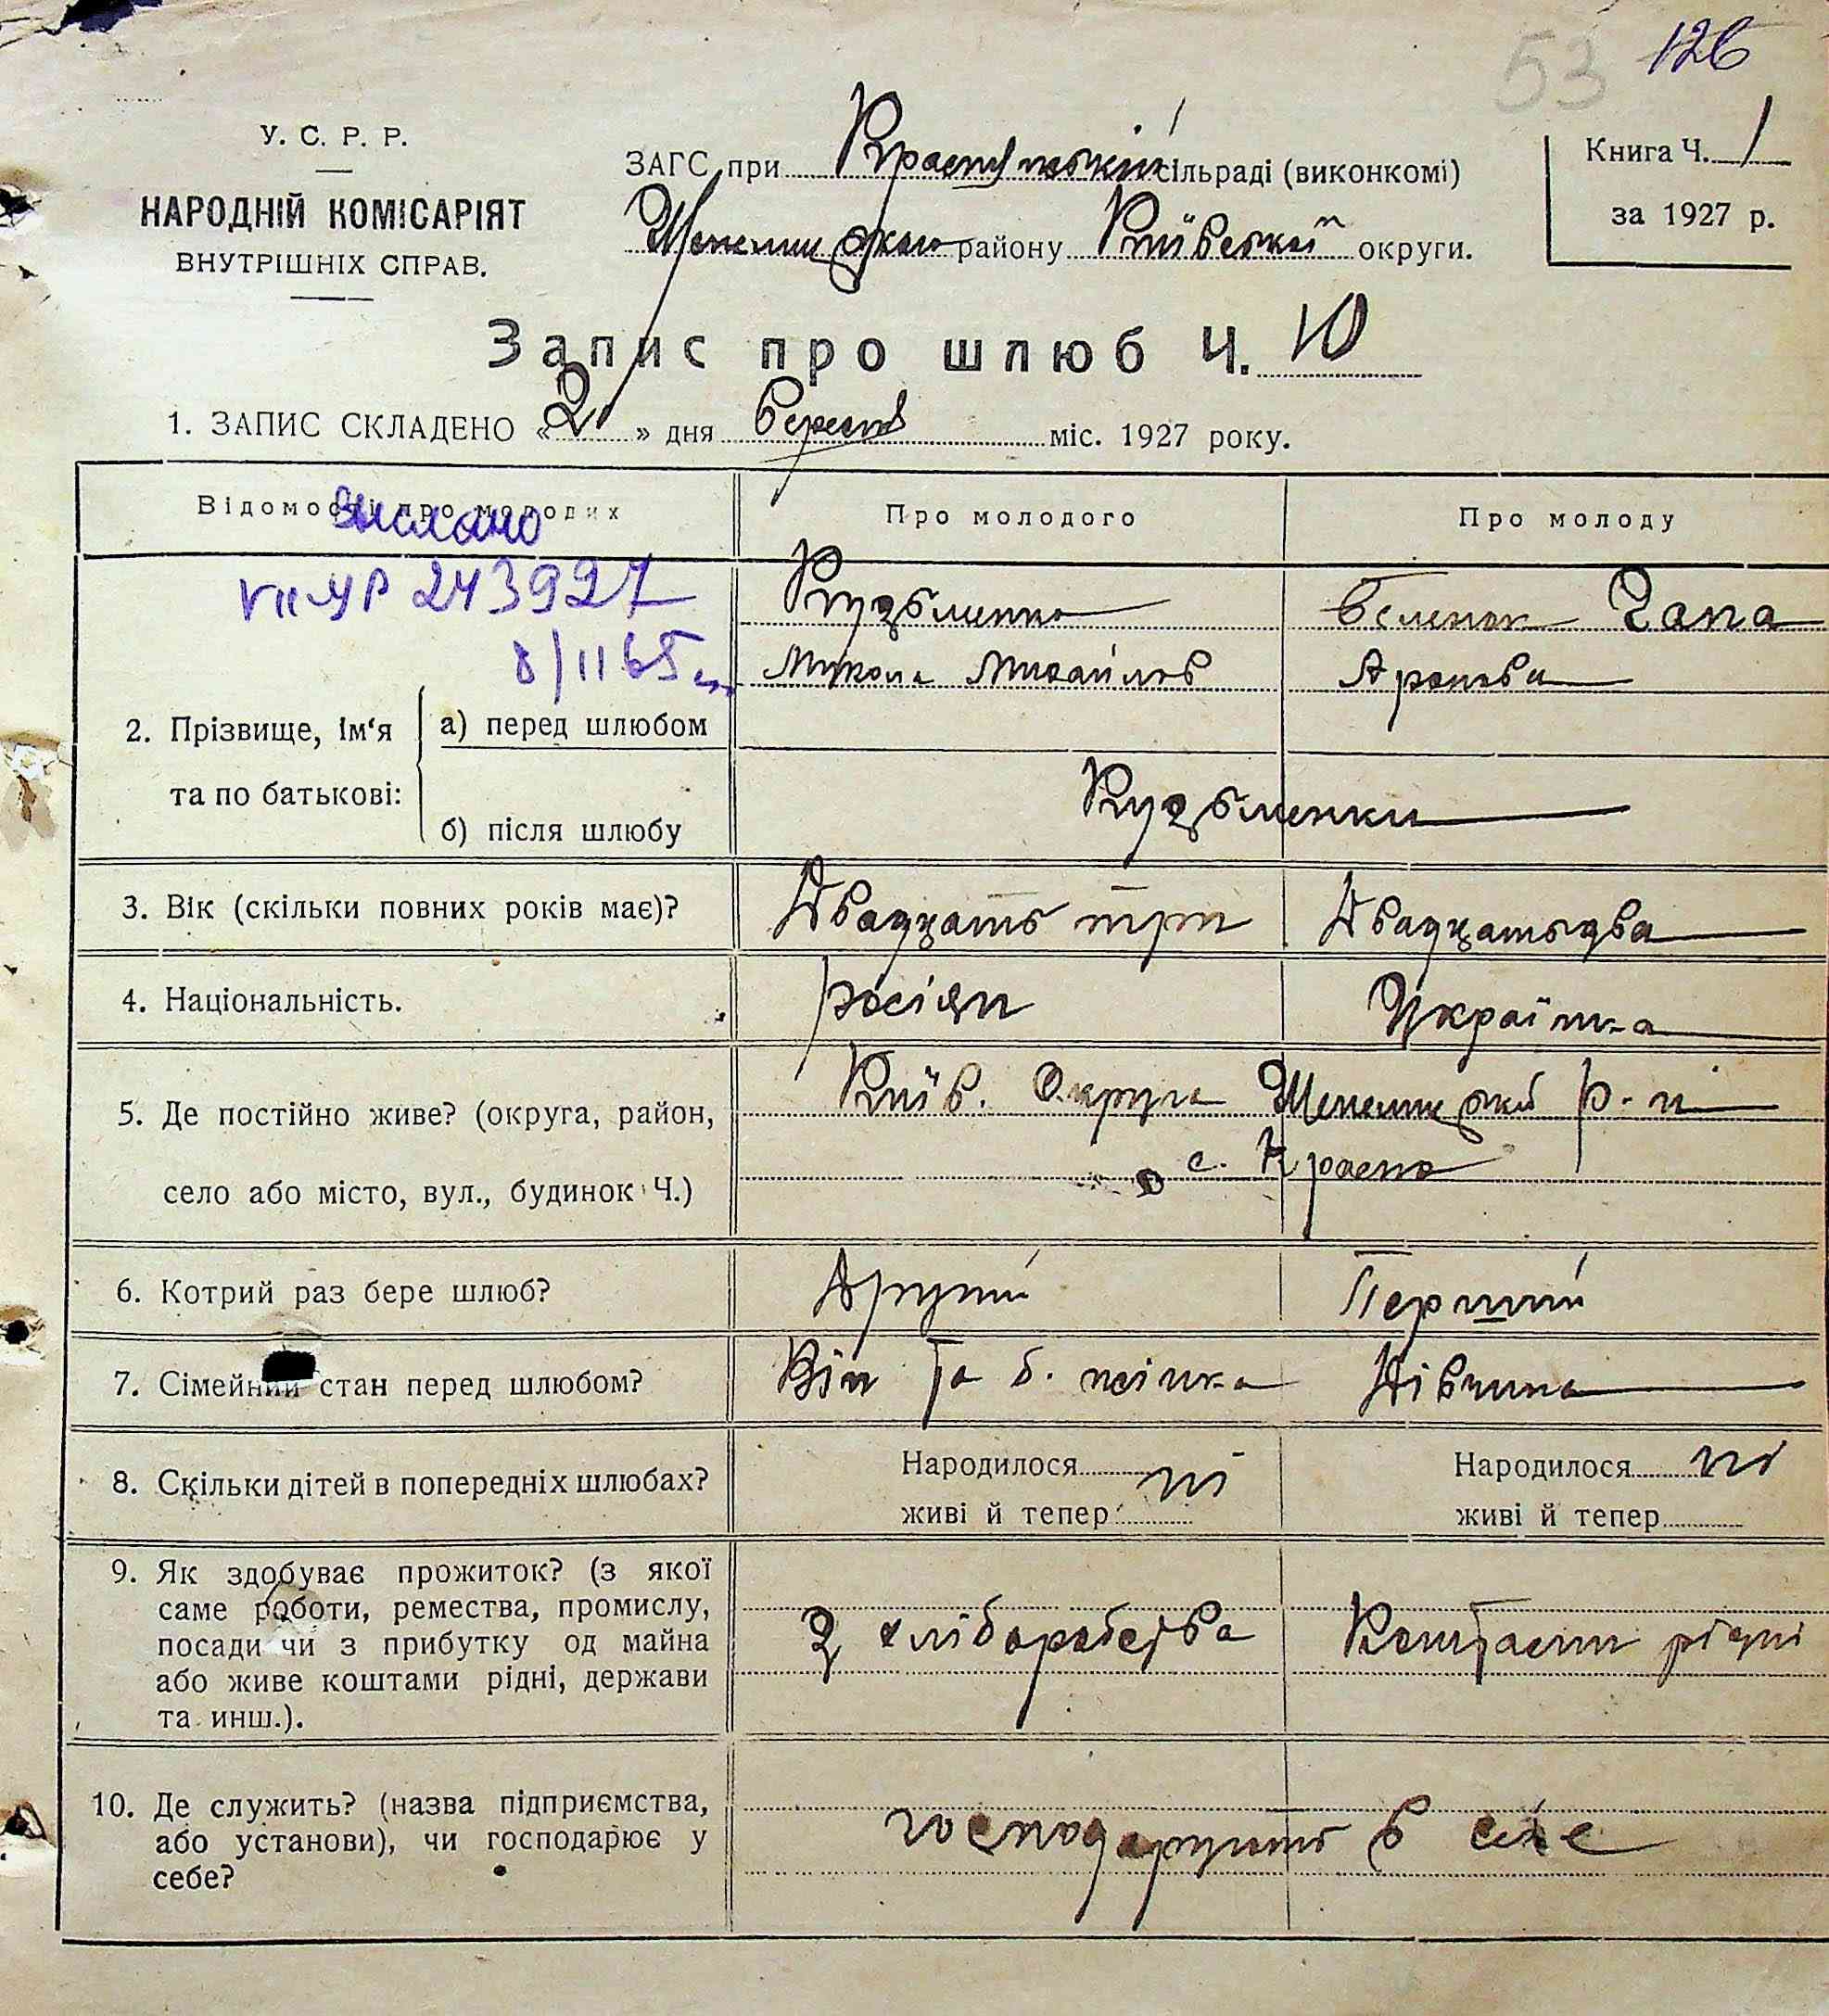 53 126
У. С. Р. Р.
НАРОДНІЙ КОМІСАРІЯТ
ВНУТРІШНІХ СПРАВ.
ЗАГС при сільраді (виконкомі)
району Київської округи.
Книга Ч. 1
за 1927 р.
Запис про шлюб Ч. 10
1. ЗАПИС СКЛАДЕНО «2» дня березня міс. 1927 року.
Відомості про молодих
Про молодого
Про молоду
Выслано
УР 243927
8/II 65
2. Прізвище, ім'я та по батькові:
а) перед шлюбом
Кузьменко
Микола Михайлов
Гапа
б) після шлюбу
Кузьменки
3. Вік (скільки повних років має)?
Двадцать три
Двадцатьдва
4. Національність.
росіян
Українка
5. Де постійно живе? (округа, район,
село або місто, вул., будинок Ч.)
Київ. Округа р-н
с. Красно
6. Котрий раз бере шлюб?
Другий
Перший
7. Сімейний стан перед шлюбом?
Він та б. жінка
Дівчина
8. Скільки дітей в попередніх шлюбах?
Народилося ні
живі й тепер
Народилося ні
живі й тепер
9. Як здобуває прожиток? (з якої
саме роботи, ремества, промислу,
посади чи з прибутку од майна
або живе коштами рідні, держави
та инш.).
З хліборобства
Коштами рідні
10. Де служить? (назва підприємства,
або установи), чи господарює у
себе?
господарують в себе